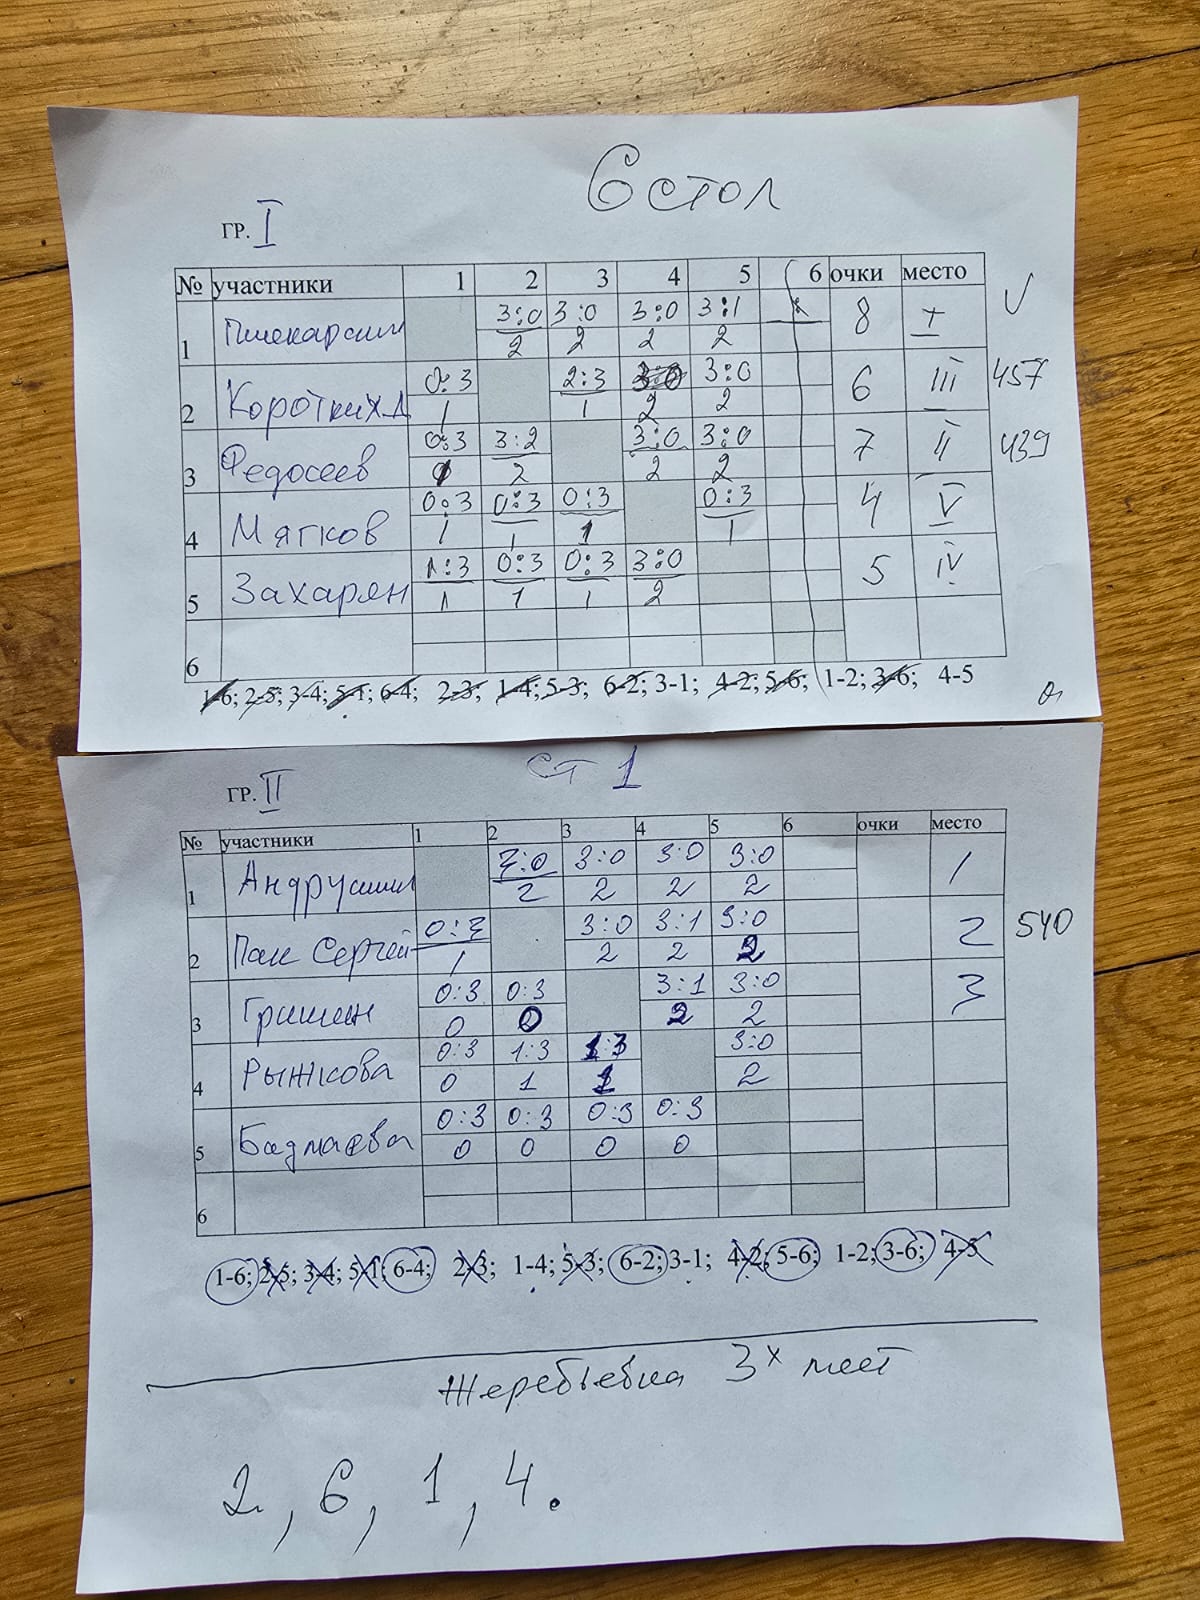 6 стол
ГР. I
№ участники 1 2 3 4 5 6 очки место
1 3:0 3:0 3:0 3:1 8 I
2 2 2 2
2 Коротких Д 0:3 2:3 3:0 3:0 6 III 457
1 1 2 2
3 Федосеев 0:3 3:2 3:0 3:0 7 II 439
2 2 2
4 Мягков 0:3 0:3 0:3 0:3 4 V
1 1 1 1
5 Захарян 1:3 0:3 0:3 3:0 5 IV
1 1 1 2
6
1-6; 2-5; 3-4; 5-1; 6-4; 2-3; 1-4; 5-3; 6-2; 3-1; 4-2; 5-6; 1-2; 3-6; 4-5
ст 1
ГР. II
№ участники 1 2 3 4 5 6 очки место
1 3:0 3:0 3:0 3:0 1
2 2 2 2
2 Пак Сергей 0:3 3:0 3:1 3:0 2 540
1 2 2 2
3 Гришин 0:3 0:3 3:1 3:0 3
0 0 2 2
4 Рыжкова 0:3 1:3 1:3 3:0
0 1 1 2
5 Бадмаева 0:3 0:3 0:3 0:3
0 0 0 0
6
1-6; 2-5; 3-4; 5-1; 6-4; 2-3; 1-4; 5-3; 6-2; 3-1; 4-2; 5-6; 1-2; 3-6; 4-5
Жеребьевка 3х мест
2, 6, 1, 4.